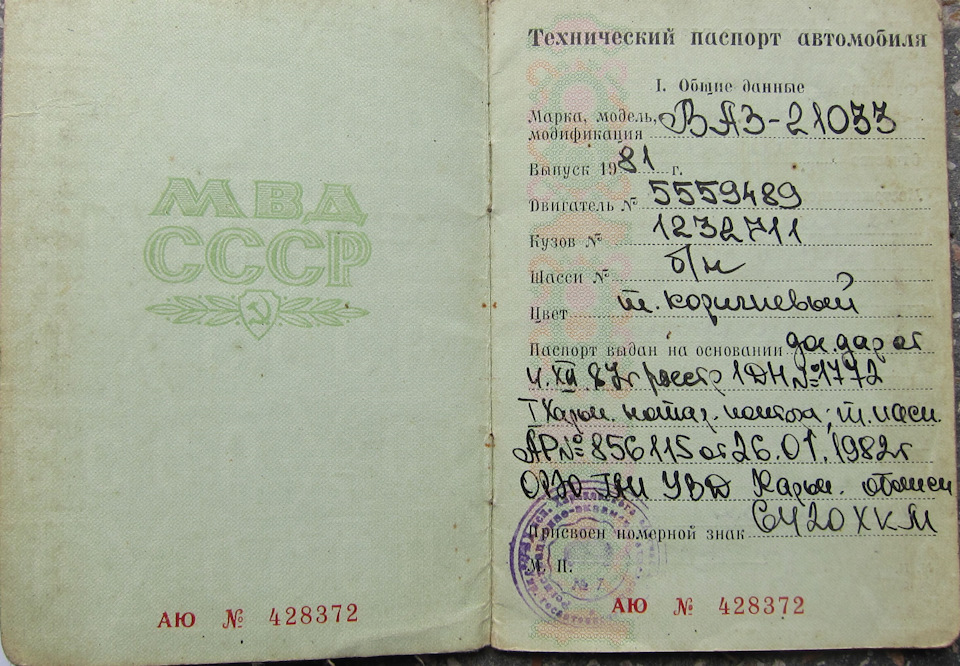 МВД
СССР
АЮ № 428372
Технический паспорт автомобиля
I. Общие данные
Марка, модель, модификация ВАЗ-21033
Выпуск 1981 г.
Двигатель № 5559489
Кузов № 1232711
Шасси № б/н
Цвет т. коричневый
Паспорт выдан на основании дог. дар от
4. XII 87г реестр 1ДН №1772
I Харьк. нотар. контора; т. пасп.
АР № 856115 от 26.01.1982г
ОРЭО ГАИ УВД Харьк. области
Присвоен номерной знак С4120ХКМ
М. П.
№ 7
АЮ № 428372